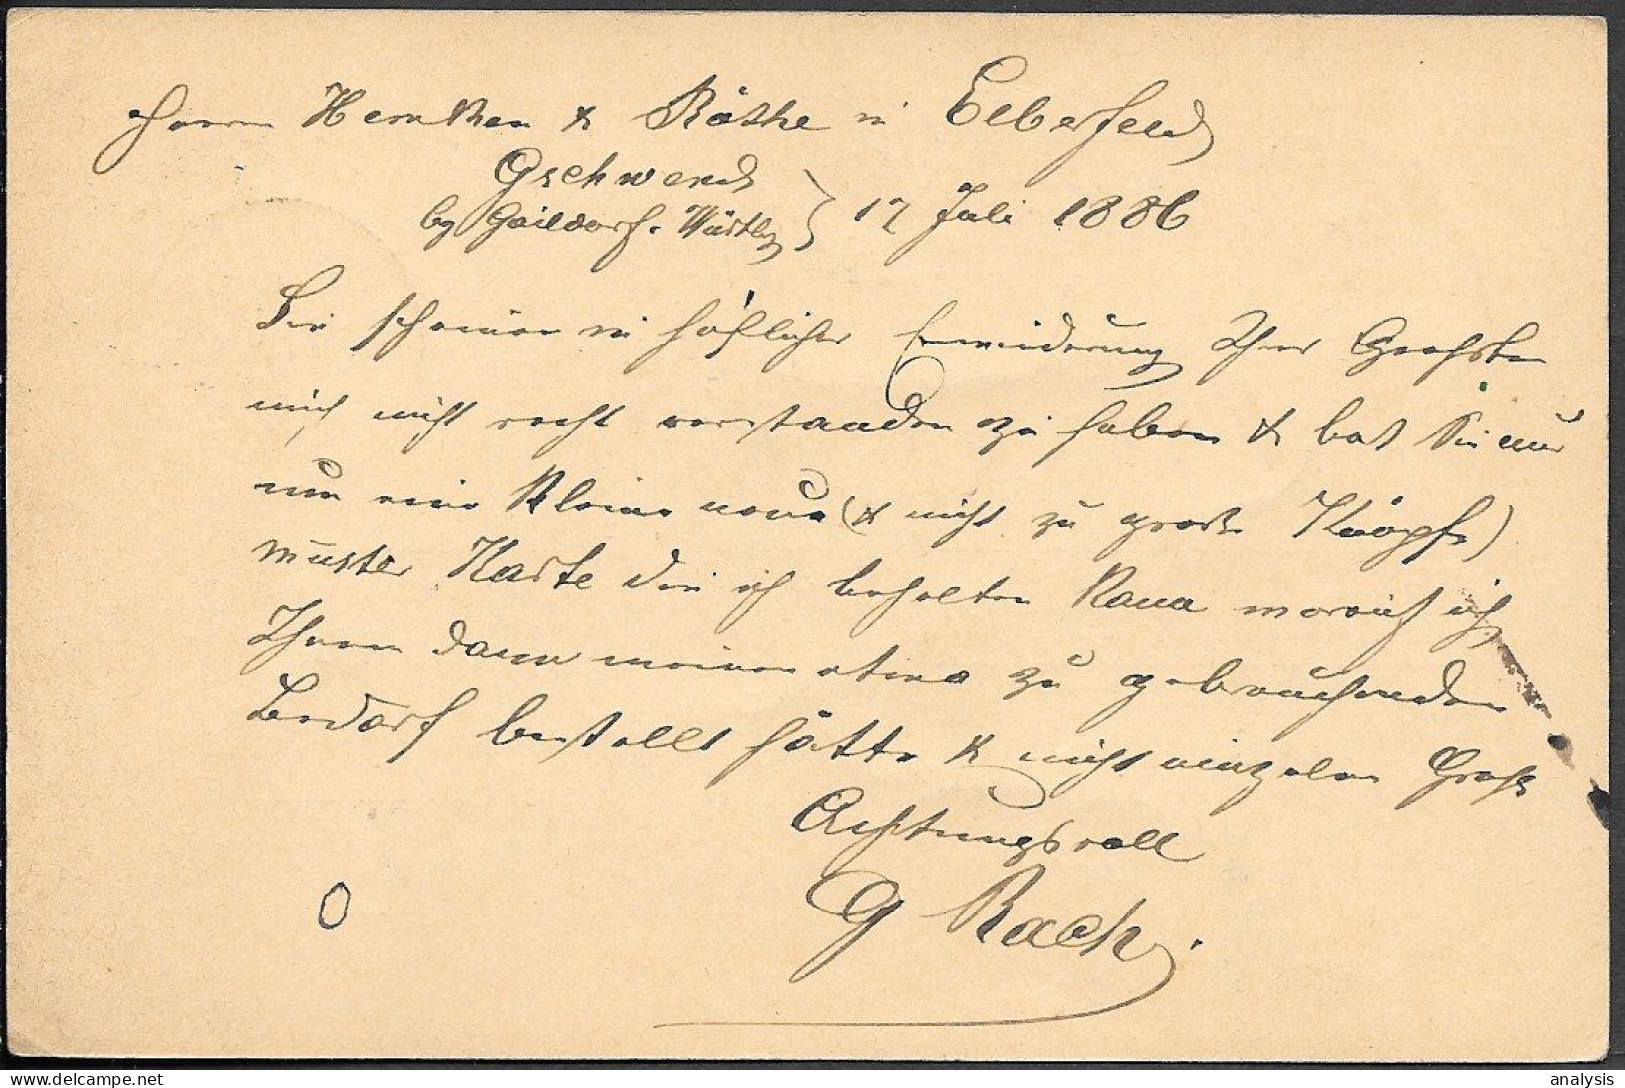 Herren Hemken & Röthe in Elberfeld
Gschwend
by Gaildorf. Württbg } 17 Juli 1886
Sie scheinen in höflicher Erwiderung Ihres Geehrten
mich nicht recht verstanden zu haben & bat Sie nur
um eine Kleine neue (& nicht zu große Knöpfe)
Muster Karte die ich behalten Kann
Ihnen dann meinen etwa zu gebrauchenden
Bedarf bestellt hätte & nicht einzelne Große
Achtungsvoll
G Rach
0
analysis
delcampe.net